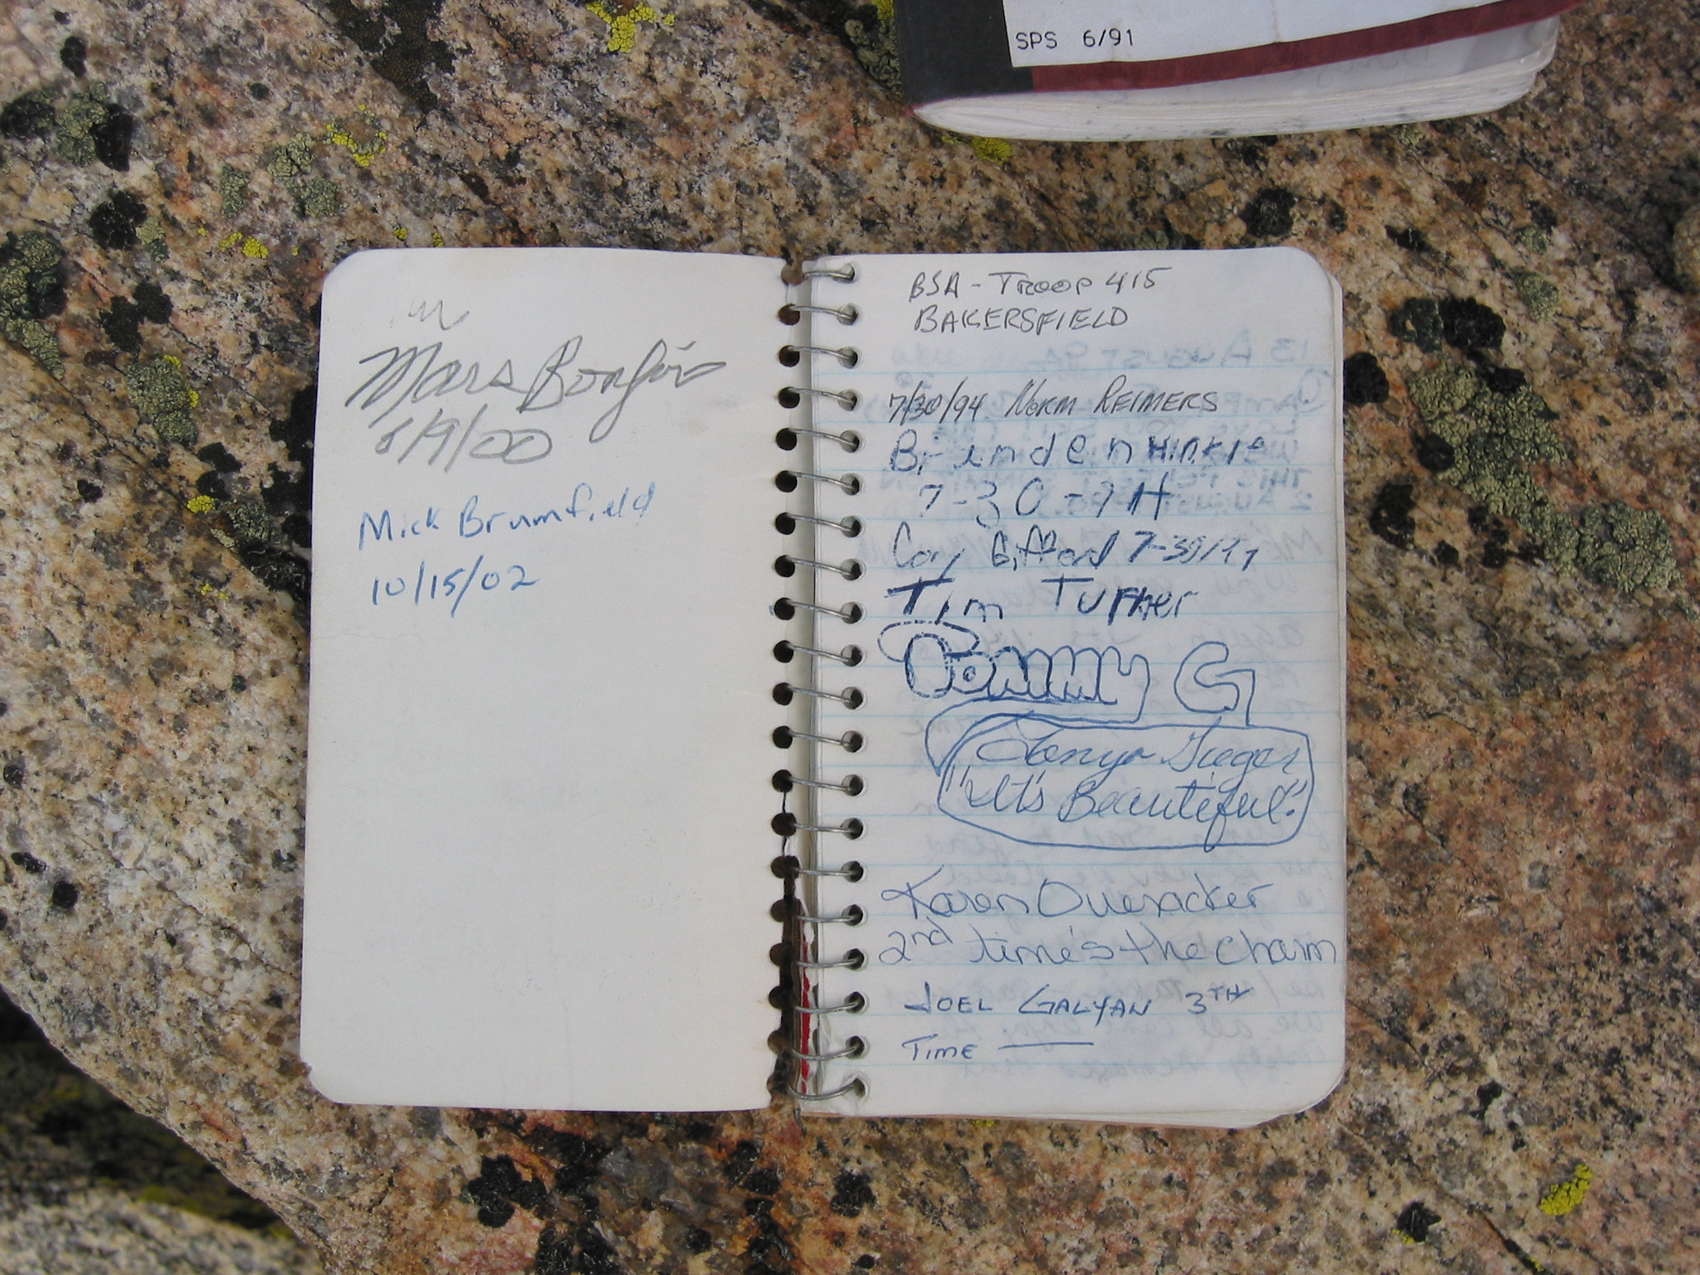 SPS 6/91
Mars Bonfire
6/9/00
Mick Brumfield
10/15/02
BSA - TROOP 415
BAKERSFIELD
7/30/94 NORM REIMERS
Brunden Hinkle
7-30-94
Cory Gifford 7-30/94
Tim Turner
TOMMY G
Tonya Gieger
"It's Beautiful".
Karen Oueracker
2nd time's the charm
JOEL GALYAN 3TH
TIME
13 AUGUST 94
2 AUGUST